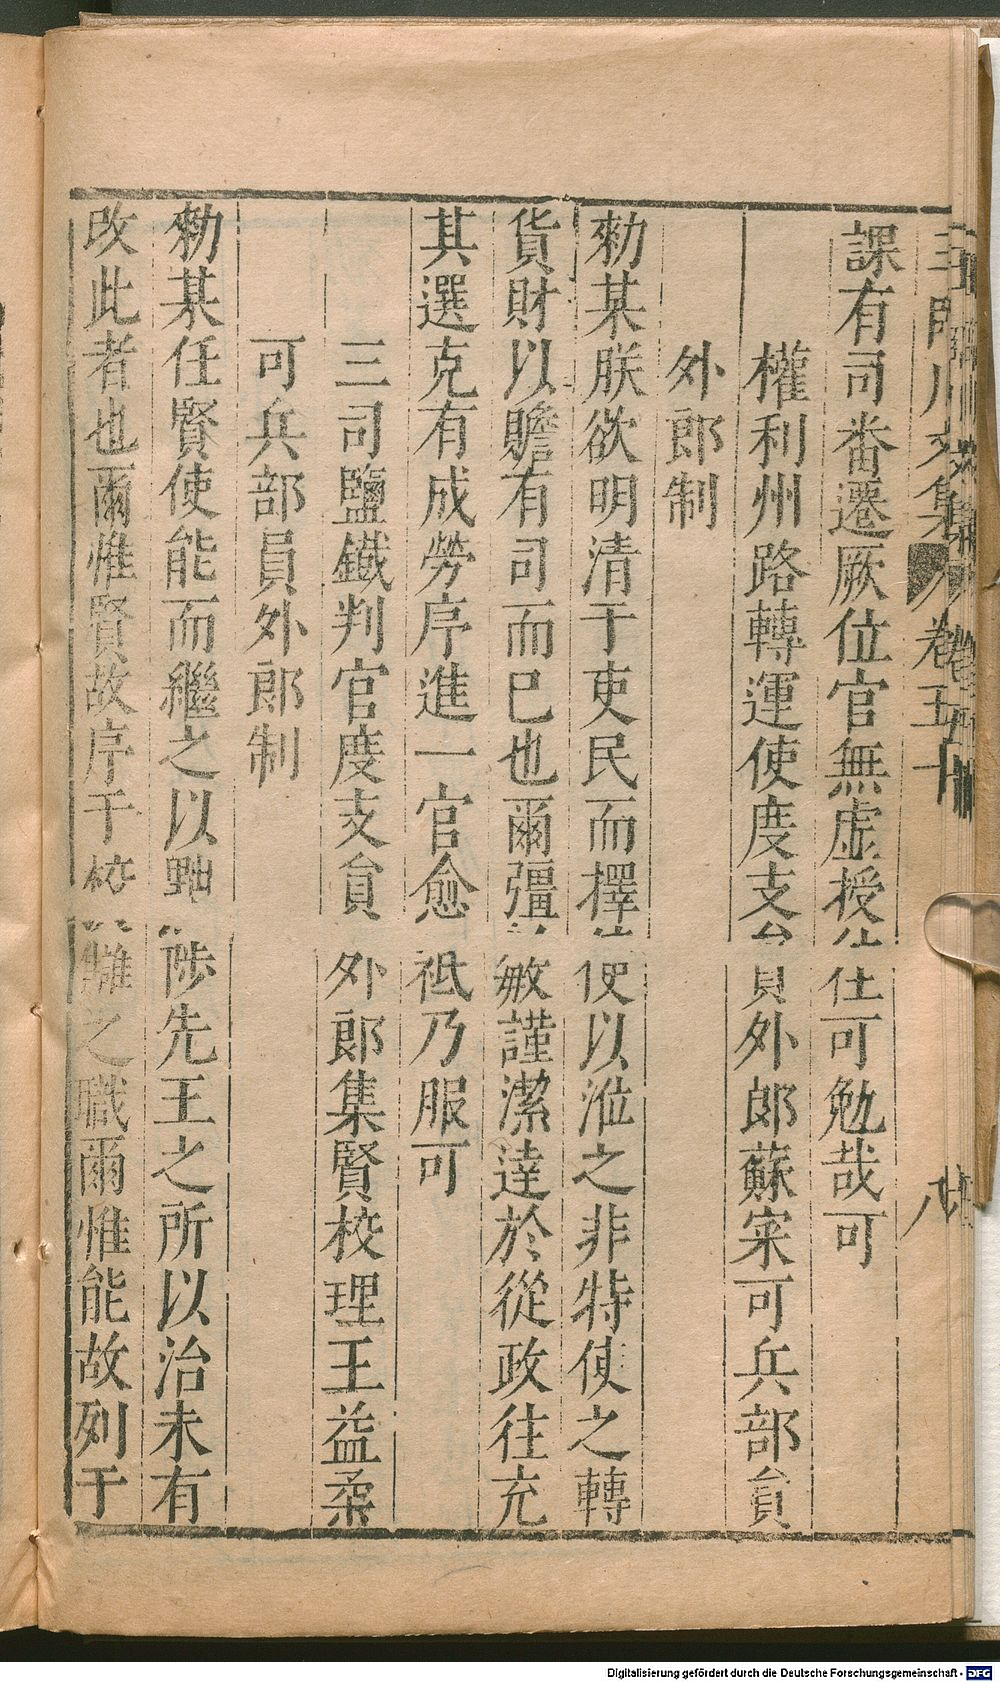 課有司畨遷厥位官無虛授往可勉哉可
權利州路轉運使度支員外郎蘇寀可兵部員
外郎制
勑某朕欲明清于吏民而擇使以涖之非特使之轉
貨財以贍有司而已也爾彊敏謹潔達於從政往充
其選克有成勞序進一官愈祗乃服可
三司鹽鐵判官度支員外郎集賢校理王益柔
可兵部員外郎制
勑某任賢使能而繼之以黜陟先王之所以治未有
改此者也爾惟賢故序于校讎之職爾惟能故列于
文集 卷五十 八
Digitalisierung gefördert durch die Deutsche Forschungsgemeinschaft - DFG